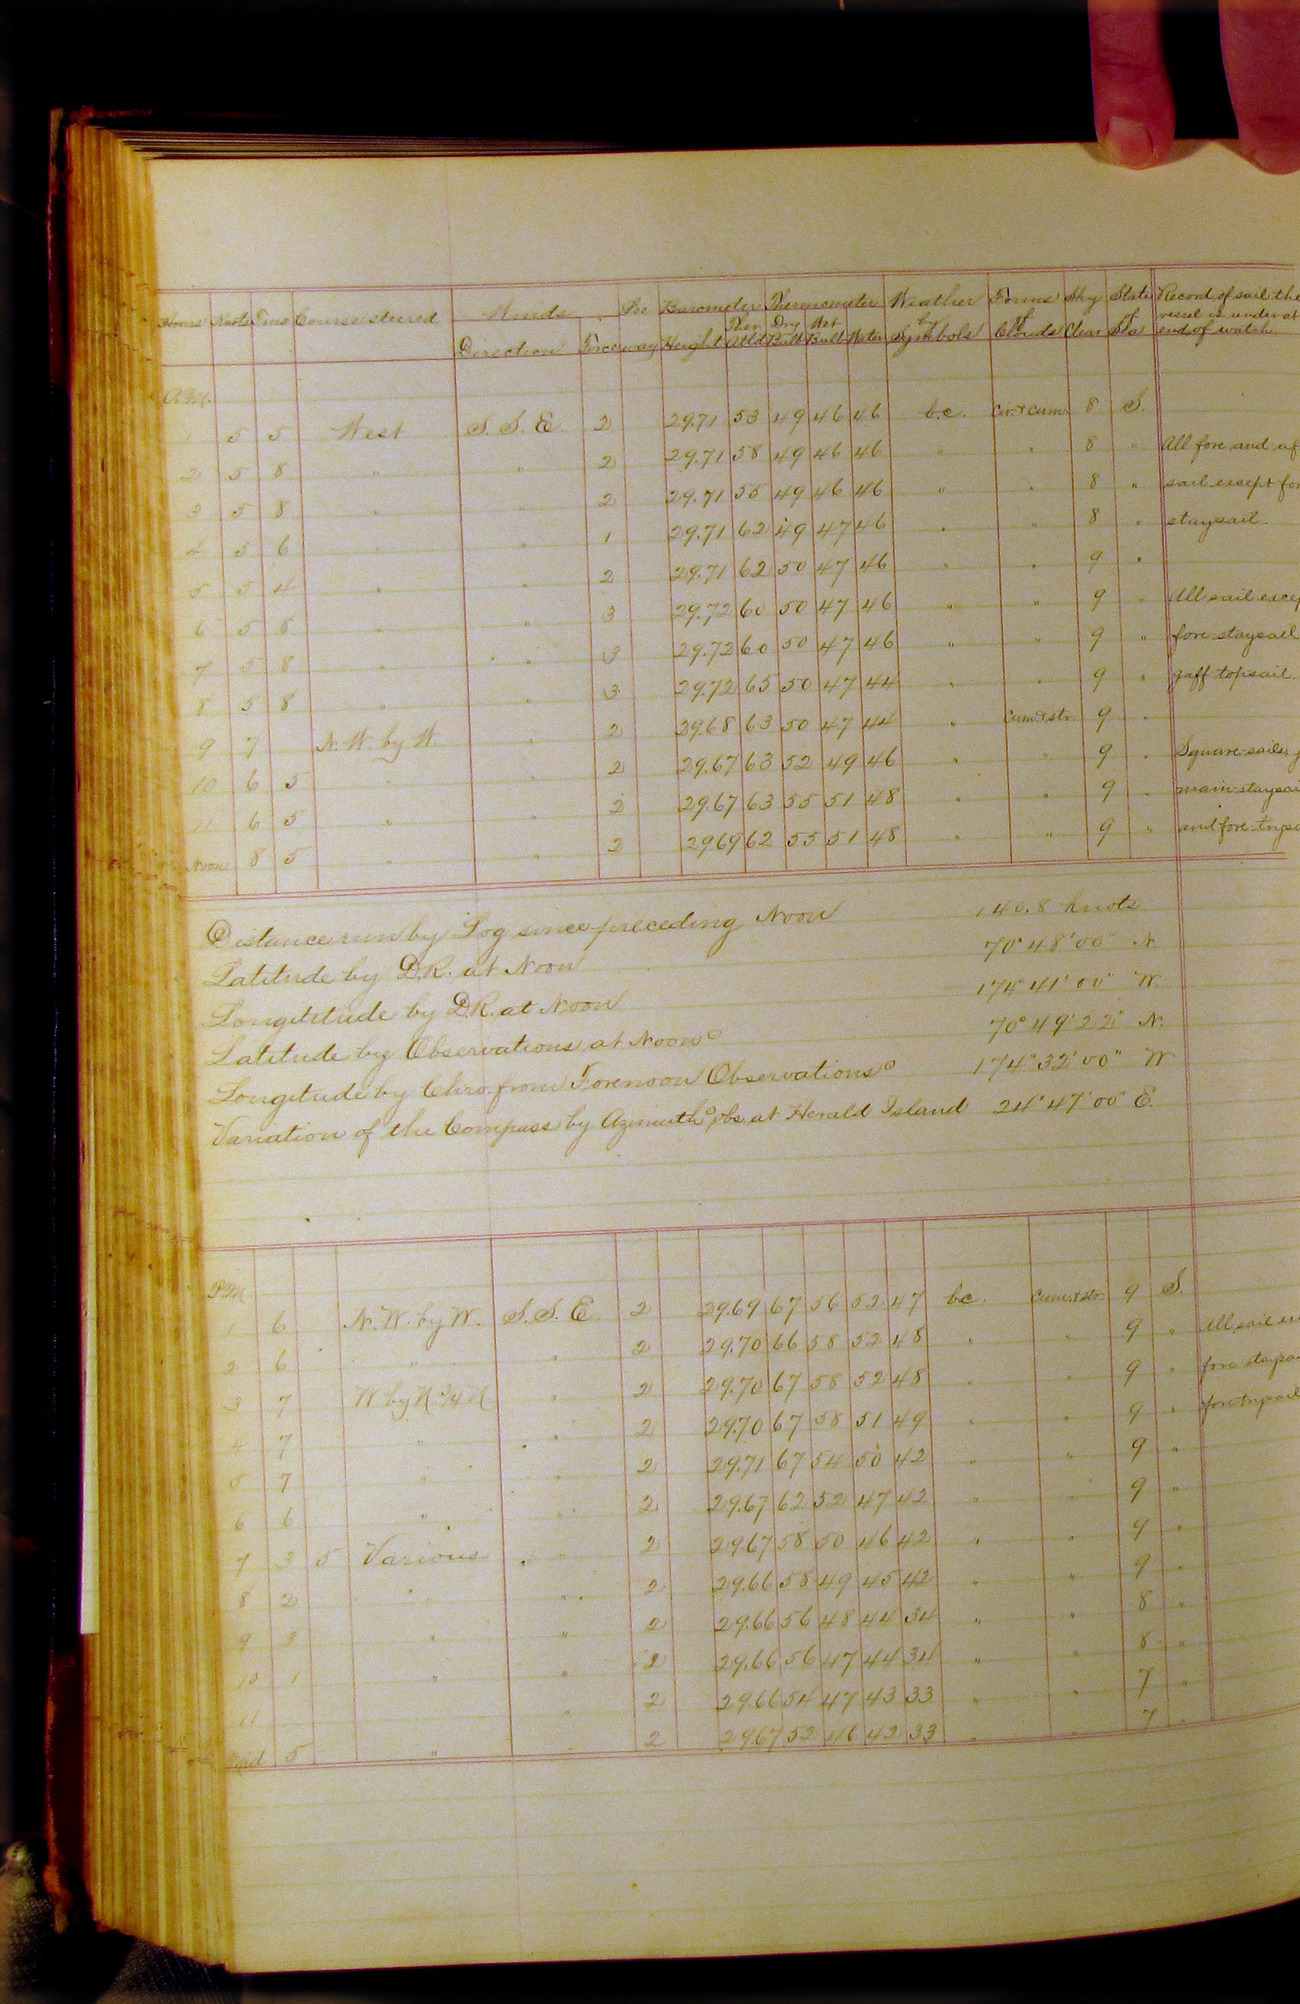 Hours Knots Tens Course steered Winds Lee Barometer Thermometer Weather Forms Sky State Record of sail the
Direction Force way Height Ther. Att'd Dry Bulb Wet Bulb Water by Symbols of Clouds Clear of Sea vessel is under at
end of watch
A.M.
1 5 5 West S. S. E. 2 29.71 53 49 46 46 b.c. Cir. & Cum. 8 S.
2 5 8 " " 2 29.71 58 49 46 46 " " 8 " All fore and af
3 5 8 " " 2 29.71 55 49 46 46 " " 8 " sail except for
4 5 6 " " 1 29.71 62 49 47 46 " " 8 " staysail.
5 5 4 " " 2 29.71 62 50 47 46 " " 9 "
6 5 8 " " 3 29.72 60 50 47 46 " " 9 " All sail excep
7 5 8 " " 3 29.72 60 50 47 46 " " 9 " fore staysail
8 5 8 " " 3 29.72 65 50 47 44 " " 9 " gaff topsail.
9 7 N. W. by W. " 2 29.68 63 50 47 44 " Cum. & str. 9 "
10 6 5 " " 2 29.67 63 52 49 46 " " 9 " Square sails,
11 6 5 " " 2 29.67 63 55 51 48 " " 9 " main staysai
Noon 8 5 " " 2 29.69 62 55 51 48 " " 9 " and fore-trysa
Distance run by Log since preceding Noon 140.8 knots
Latitude by D.R. at Noon 70° 48' 00" N.
Longitude by D.R. at Noon 174° 41' 00" W.
Latitude by Observations at Noon 70° 49' 22" N.
Longitude by Chro. from Forenoon Observations 174° 32' 00" W
Variation of the Compass by Azimuth Obs. at Herald Island 24° 47' 00" E.
P.M.
1 6 N. W. by W. S. S. E. 2 29.69 67 56 52 47 b.c. Cum. & str. 9 S.
2 6 " " 2 29.70 66 58 52 48 " " 9 " All sail
3 7 W by N 3/4 N " 2 29.70 67 58 52 48 " " 9 " fore staysa
4 7 " " 2 29.70 67 58 51 49 " " 9 " fore trysail
5 7 " " 2 29.71 67 54 50 42 " " 9 "
6 6 " " 2 29.67 62 52 47 42 " " 9 "
7 3 5 Various " 2 29.67 58 50 46 42 " " 9 "
8 2 " " 2 29.66 58 49 45 42 " " 9 "
9 3 " " 2 29.66 56 48 44 34 " " 8 "
10 1 " " 2 29.66 56 47 44 34 " " 8 "
11 " 2 29.66 54 47 43 33 " " 7 "
Mid 5 " 2 29.67 52 46 42 33 " " 7 "